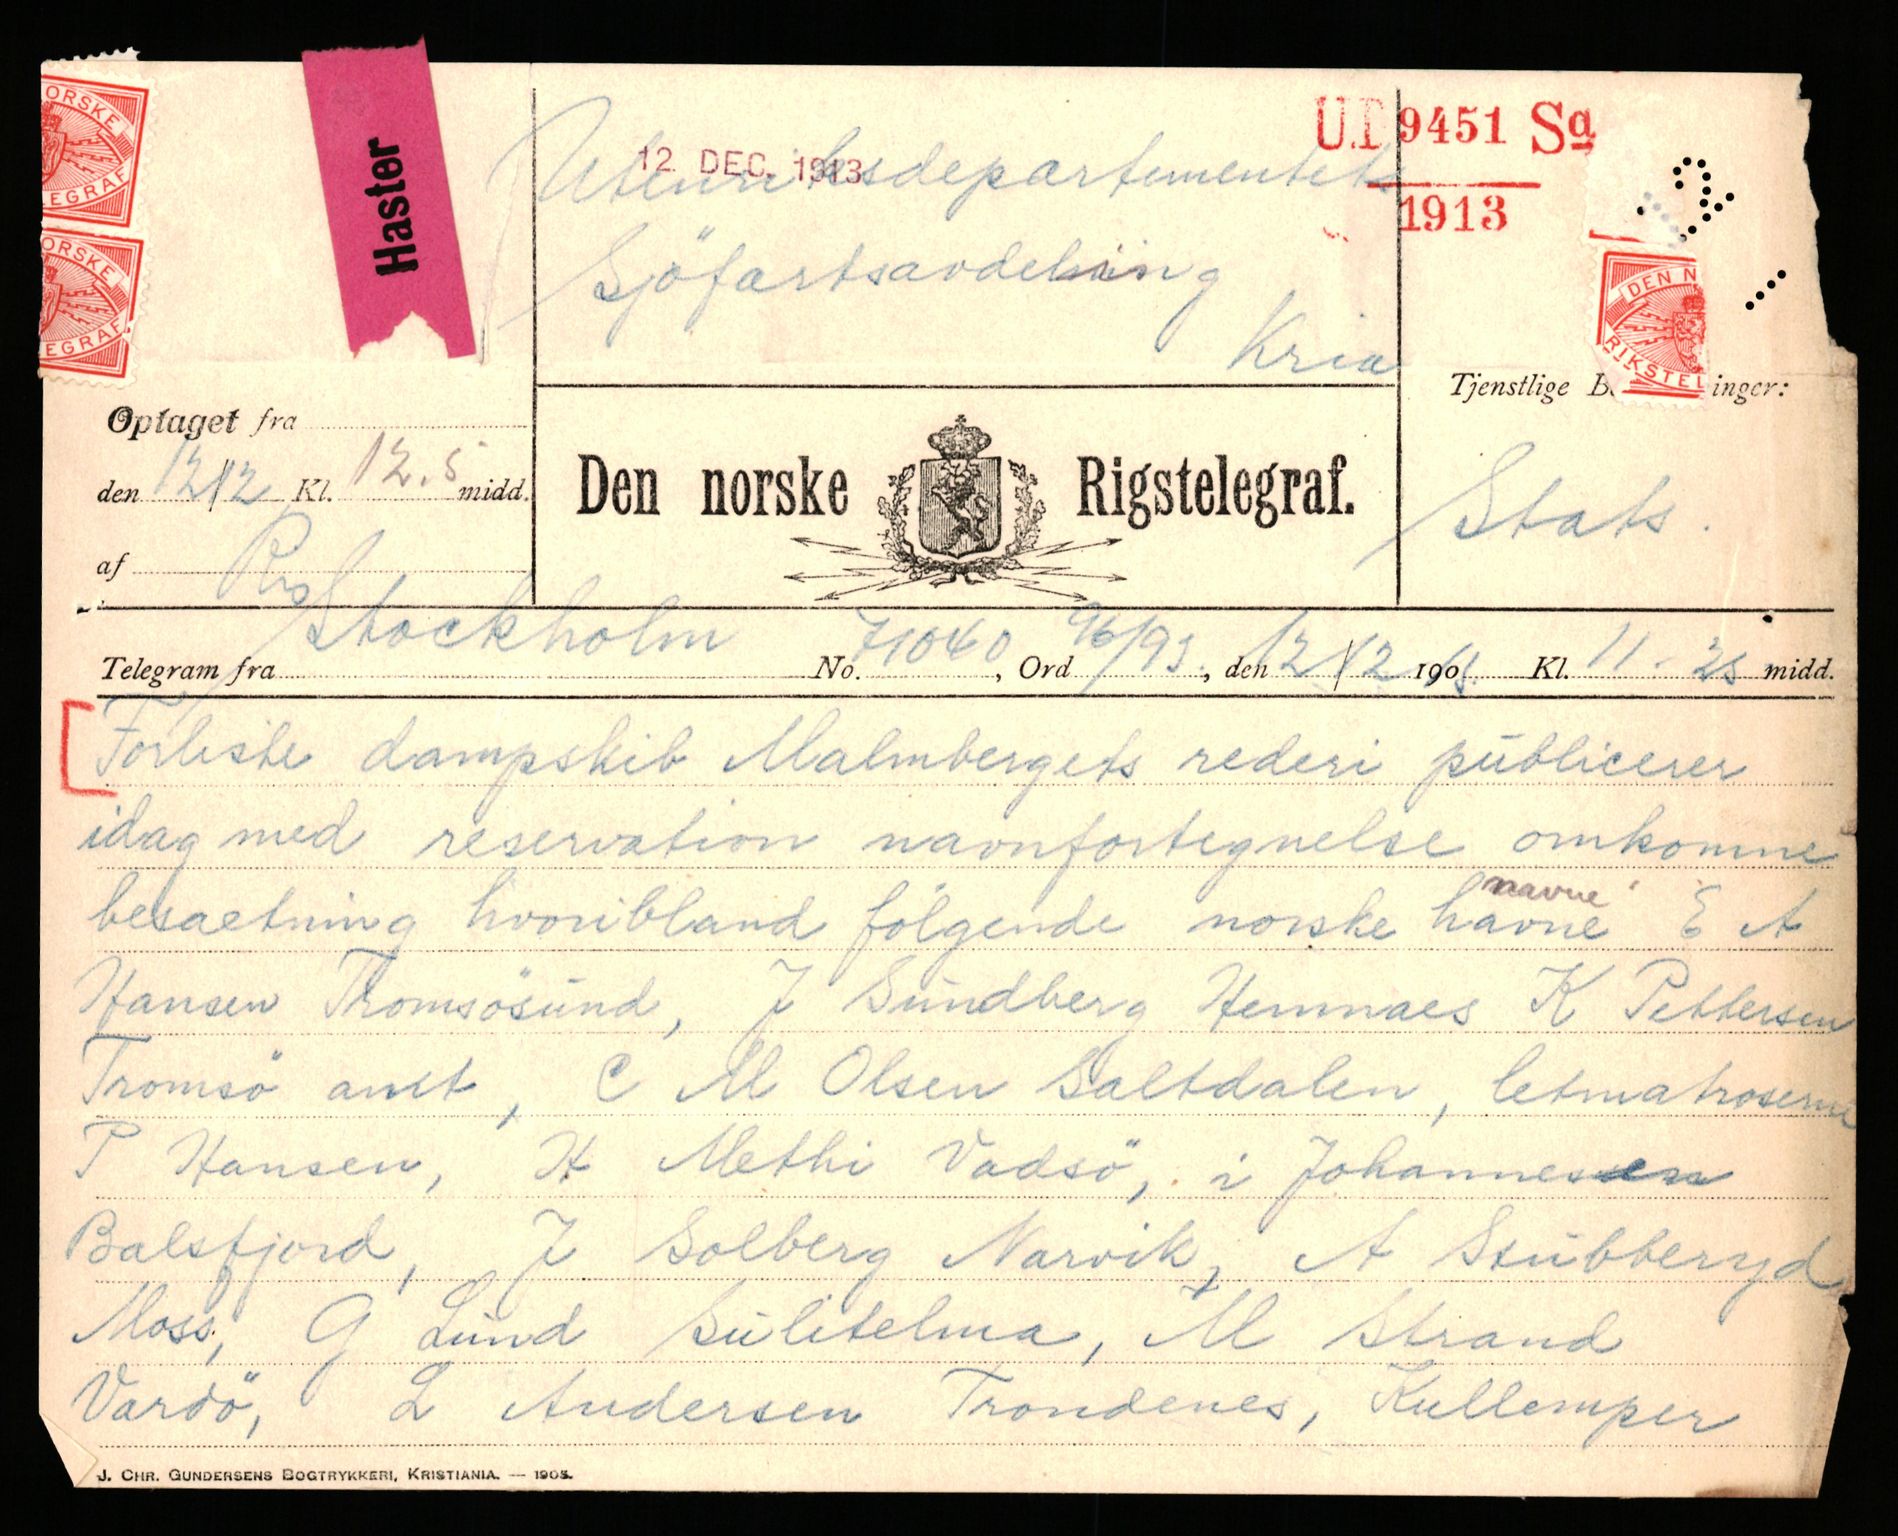 ORSKE
EGRAF
ORSKE
EGRAF
Haster
12 DEC. 1913
U.D 9451 Sa
1913
Utenriksdepartementets
Sjöfartsavdeling
Kria
DEN N
RIKSTEL
Optaget fra
den 12/12 Kl. 12.5 midd.
af
Den norske Rigstelegraf.
Tjenstlige B inger:
Stats.
Telegram fra Stockholm No. 71040, Ord 96/93, den 12/12 190 Kl. 11.25 midd.
Forliste dampskib Malmbergets rederi publicerer
idag med reservation navnfortegnelse omkomne
besaetning hvoribland følgende norske havne navne E A
Hansen Tromsösund, J Sundberg Hemnaes K Pettersen
Tromsö amt, C M Olsen Saltdalen, letmatroserne
P Hansen, H Methi Vadsö, i Johannessen
Balsfjord, J Solberg Narvik, A Stubberyd
Moss, G Lund Sulitelma, M Strand
Vardö, L Andersen Trondenes, Kullemper
J. CHR. GUNDERSENS BOGTRYKKERI, KRISTIANIA. — 1905.